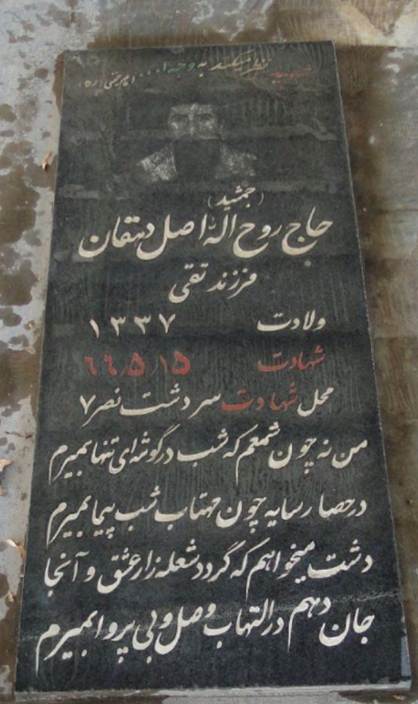 شهید نظر میکند به وجه ا... امام خمینی (ره)
(جمشید)
حاج روح اله اصل دهقان
فرزند تقی
ولادت ۱۳۳۷
شهادت ۶۶،۵،۱۵
محل شهادت سردشت نصر ۷
من نه چون شمعم که شب در گوشه‌ای تنها بمیرم
در حصار سایه چون مهتاب شب پیما بمیرم
دشت میخواهم که گردد شعله زار عشق و آنجا
جان دهم در التهاب وصل و بی پروا بمیرم